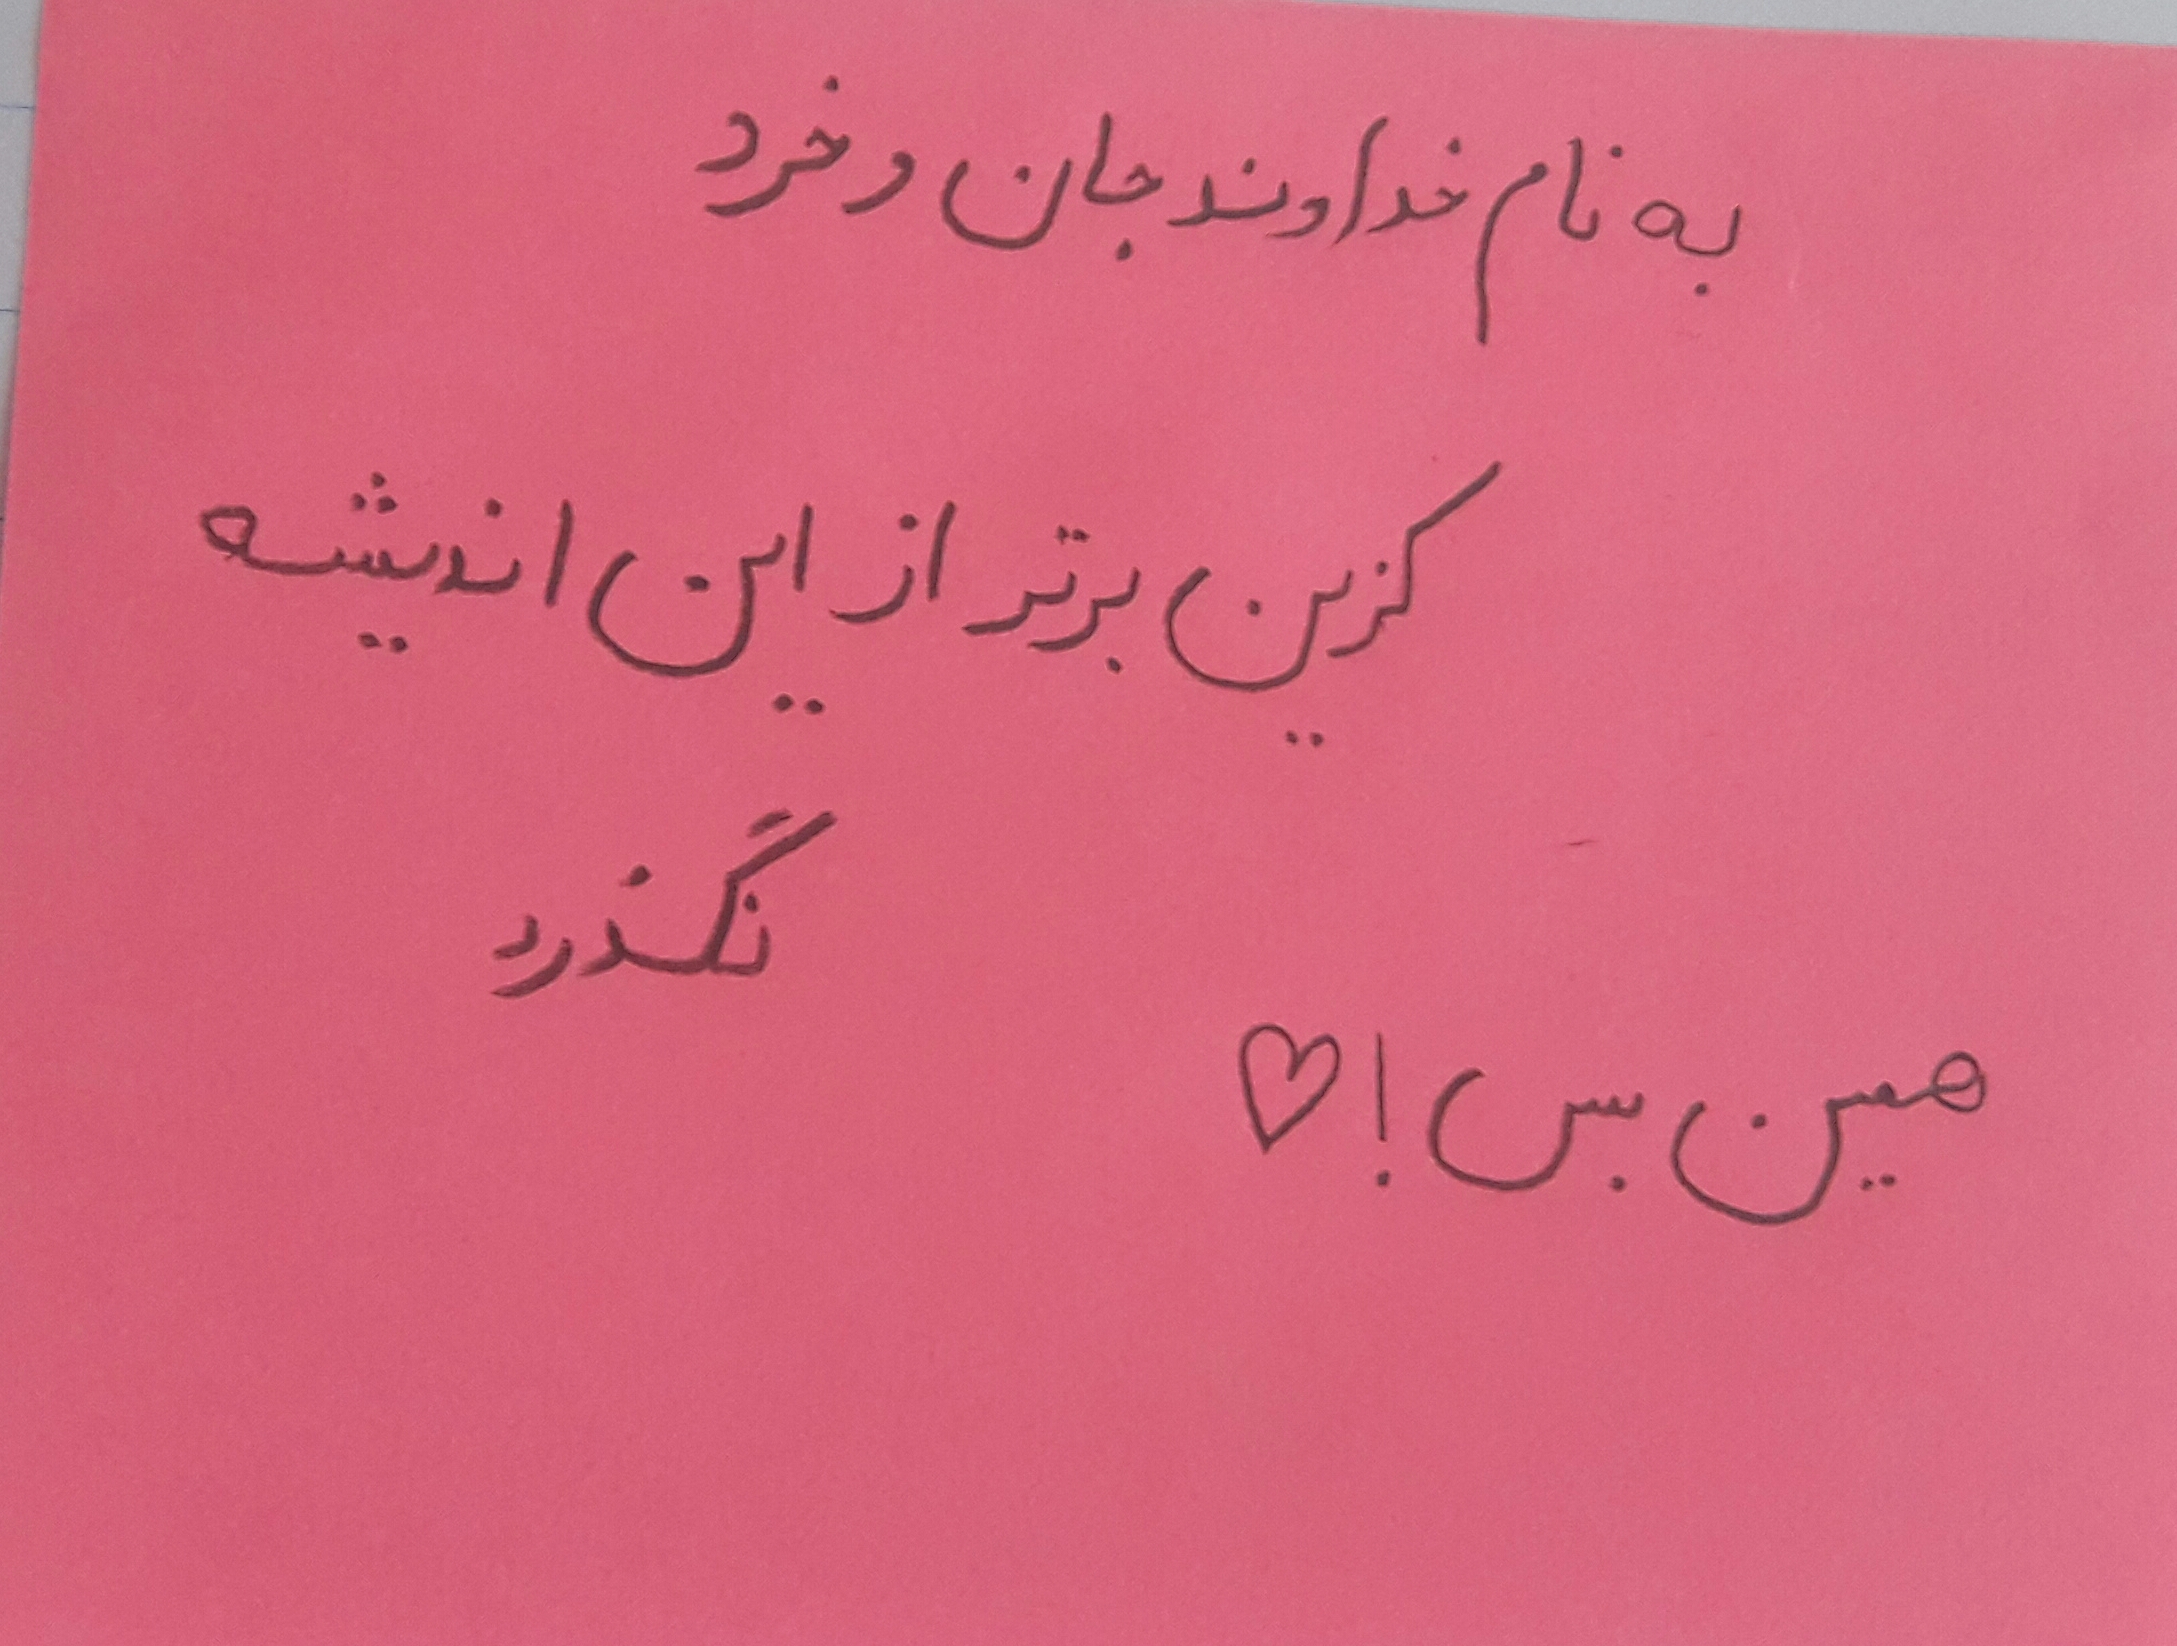 به نام خداوند جان و خرد
کزین برتر از این اندیشه
نگذرد
همین بس!♡